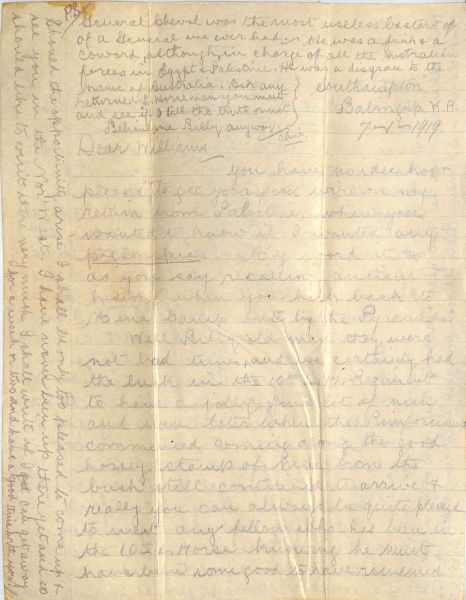 General Chevel was the most useless bastard of
of a General we ever had. He was a funk & a
coward, although, in charge of all the Australian
forces in Egypt & Palestine. He was a disgrace to the
name of Australia. Ask any
returned Horseman you meet
and see if I tell the truth or not
Believe me Billy anyway. Chris.
Southampton
Balingup W.A.
1919.
Dear Williams
You have no idee how
pleased to get your card wire on my
return from Palestine, when you
wanted to know if I wanted any
My word it is
as you say recalling ancient
history when you hark back to
Mena Camp out by the Pyramids.
Well Billy old man they were
not bad times, and we certainly had
the luck in the 10th L.H. Regiment
to have a jolly fine lot of men
and even later when the Reinforcements
commenced coming along the good
horsey stamp of men from the
bush still continued to arrive &
really you can always be quite pleased
to meet any fellow who has been in
the 10th L Horse knowing he must
have been some good to have remained
Should the opportunity arise I shall be only too pleased to come up &
see you in the Nor' West. I have never been up there yet and so
should like to visit there very much. I shall write if I can get away
for a week or two and have a good time with you.